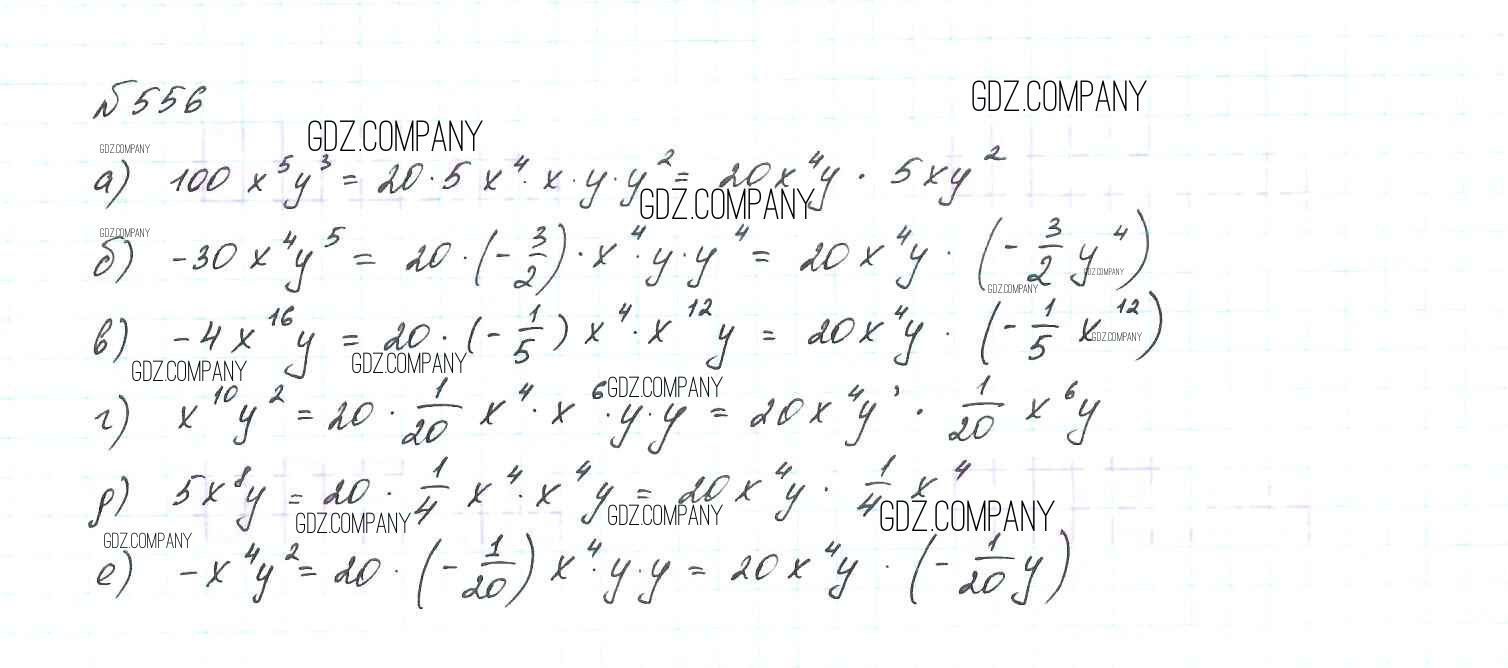 №556
GDZ.COMPANY
GDZ.COMPANY
GDZ.COMPANY
а) 100 x⁵y³ = 20·5 x⁴·x·y·y² = 20x⁴y · 5xy²
GDZ.COMPANY
GDZ.COMPANY
б) -30 x⁴y⁵ = 20·(-3/2)·x⁴·y·y⁴ = 20x⁴y · (-3/2 y⁴)
GDZ.COMPANY
GDZ.COMPANY
в) -4x¹⁶y = 20·(-1/5) x⁴·x¹²y = 20x⁴y · (-1/5 x¹²)
GDZ.COMPANY
GDZ.COMPANY
GDZ.COMPANY
GDZ.COMPANY
г) x¹⁰y² = 20 · 1/20 x⁴·x⁶·y·y = 20x⁴y · 1/20 x⁶y
д) 5x⁸y = 20 · 1/4 x⁴·x⁴y = 20x⁴y · 1/4 x⁴
GDZ.COMPANY
GDZ.COMPANY
GDZ.COMPANY
GDZ.COMPANY
е) -x⁴y² = 20 · (-1/20) x⁴·y·y = 20x⁴y · (-1/20 y)